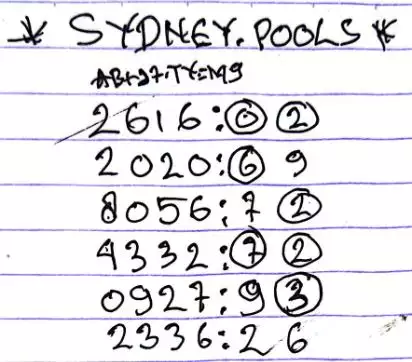 * SYDNEY.POOLS *
AB+27.TY=M9
2616:0 2
2020:6 9
8056:7 2
4332:7 2
0927:9 3
2336:2 6